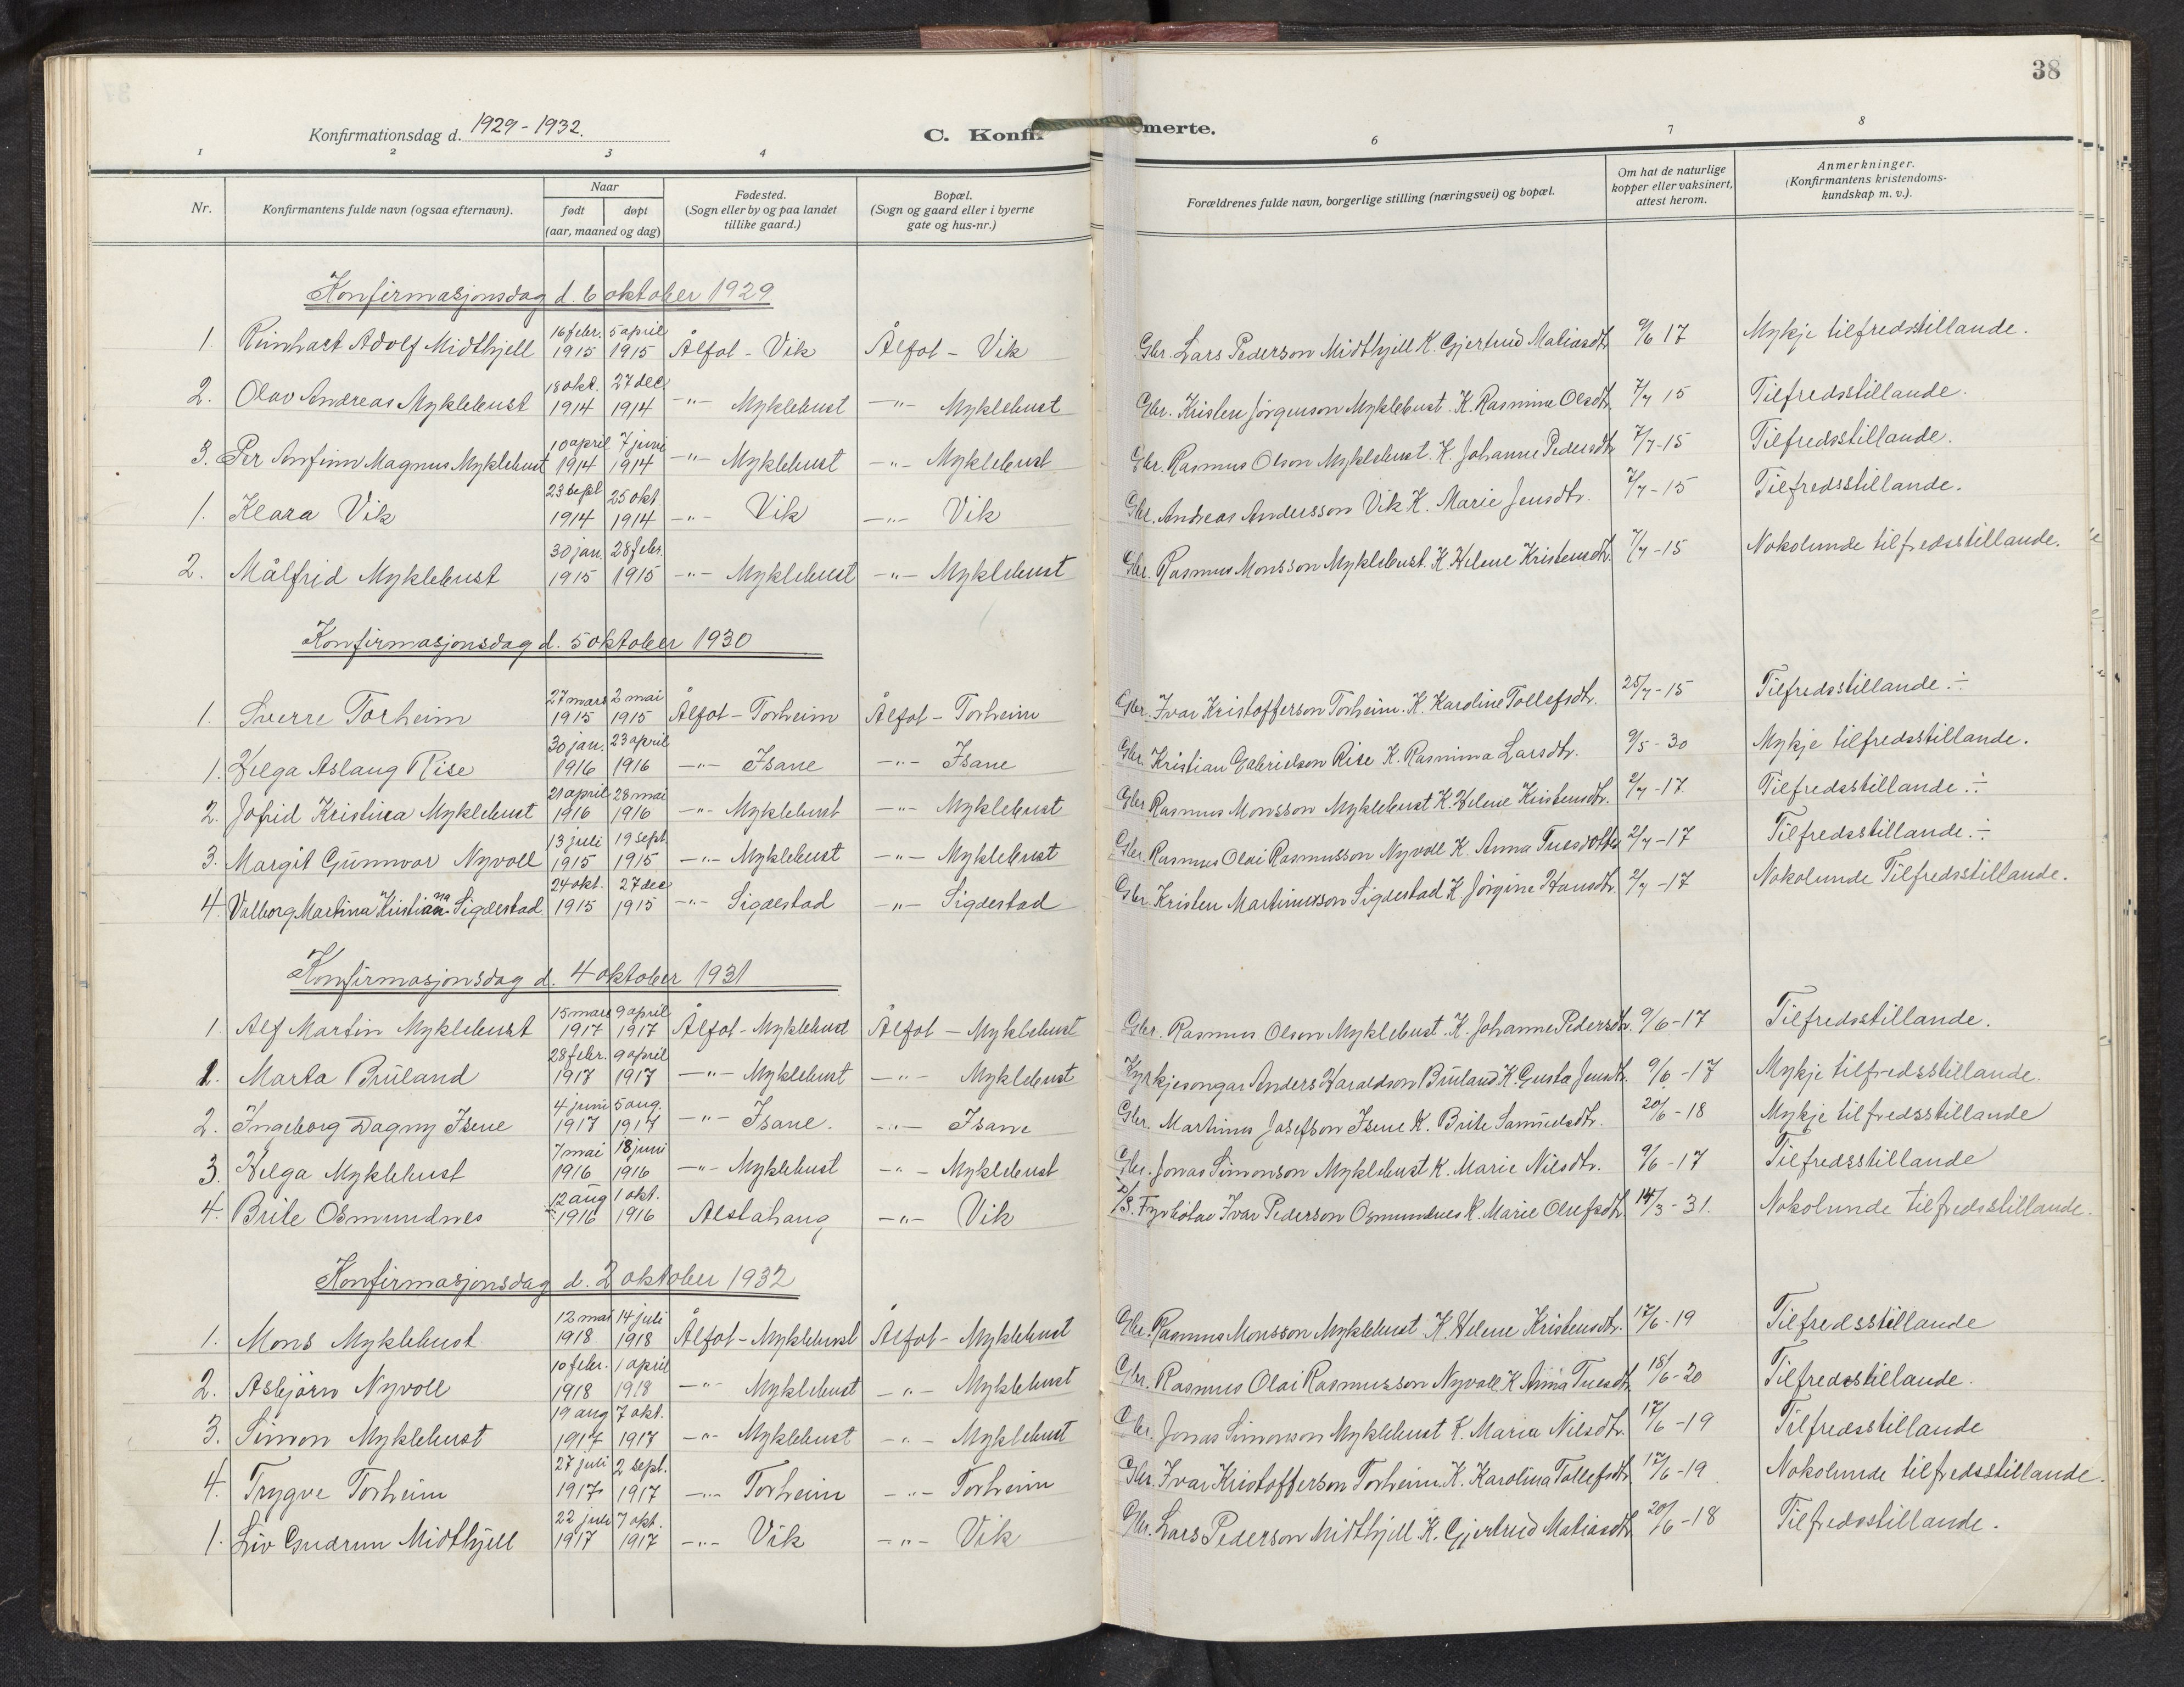 38
Konfirmationsdag d. 1929-1932.
C. Konfir
merte.
1 2 3 4 6 7 8
Nr. Konfirmantens fulde navn (ogsaa efternavn). Naar født døpt (aar, maaned og dag) Fødested. (Sogn eller by og paa landet tillike gaard.) Bopæl. (Sogn og gaard eller i byerne gate og hus-nr.) Forældrenes fulde navn, borgerlige stilling (næringsvei) og bopæl. Om hat de naturlige kopper eller vaksinert, attest herom. Anmerkninger. (Konfirmantens kristendoms-kundskap m. v.).
Konfirmasjonsdag d. 6 oktober 1929
1. Reinhart Adolf Midthjell 16 febr. 1915 5 april 1915 Ålfot - Vik Ålfot - Vik Gbr. Lars Pederson Midthjell K. Gjertrud Matiasdtr. 9/6 17 Mykje tilfredsstillande.
2. Olav Andreas Myklebust 18 okt. 1914 27 dec 1914 -"- Myklebust -"- Myklebust Gbr. Kristen Jörgenson Myklebust. K. Rasmine Olsdtr. 7/7 15 Tilfredsstillande.
3. Per Arnfinn Magnus Myklebust 10 april 1914 7 juni 1914 -"- Myklebust -"- Myklebust Gbr. Rasmus Olson Myklebust. K. Johanne Pedersdtr 7/7-15 Tilfredsstillande.
1. Klara Vik 23 sept 1914 25 okt. 1914 -"- Vik -"- Vik Gbr. Andreas Andersson Vik K. Marie Jensdtr. 7/7-15 Tilfredsstillande.
2. Målfrid Myklebust 30 jan. 1915 28 febr. 1915 -"- Myklebust -"- Myklebust Gbr. Rasmus Monsson Myklebust. K. Helene Kristensdtr. 7/7-15 Nokolunde tilfredsstillande.
Konfirmasjonsdag d. 5 oktober 1930
1. Sverre Torheim 27 mars 1915 2 mai 1915 Ålfot - Torheim Ålfot - Torheim Gbr. Ivar Kristofferson Torheim. K. Karoline Tollefsdtr. 25/7-15 Tilfredsstillande ÷
1. Helga Aslaug Rise 30 jan. 1916 23 april 1916 -"- Isane -"- Isane Gbr. Kristian Gabrielson Rise K. Rasmina Larsdtr. 9/5-30 Mykje tilfredsstillande.
2. Jofrid Kristina Myklebust 21 april 1916 28 mai 1916 -"- Myklebust -"- Myklebust Gbr. Rasmus Monsson Myklebust K. Helene Kristensdtr. 2/7-17 Tilfredsstillande ÷
3. Margit Gunnvor Nyvoll 13 juli 1915 19 sept. 1915 -"- Myklebust -"- Myklebust Gbr. Rasmus Olai Rasmusson Nyvoll K. Anna 2/7-17 Tilfredsstillande. ÷
4. Valborg Martina Kristianna Sigdestad 24 okt. 1915 27 dec 1915 -"- Sigdestad -"- Sigdestad Gbr. Kristen Martinusson Sigdestad K. Jörgine Hansdtr. 2/7-17 Nokolunde Tilfredsstillande.
Konfirmasjonsdag d. 4 oktober 1931
1. Alf Martin Myklebust 15 mars 1917 9 april 1917 Ålfot - Myklebust Ålfot - Myklebust Gbr. Rasmus Olson Myklebust. K. Johanne Pedersdtr. 9/6-17 Tilfredsstillande.
1. Marta Bruland 28 febr. 1917 9 april 1917 -"- Myklebust -"- Myklebust Kyrkjesongar Anders Haraldson Bruland K. Gusta Jensdtr. 9/6-17 Mykje tilfredsstillande.
2. Ingeborg Dagny Isene 4 juni 1917 5 aug. 1917 -"- Isane. -"- Isane Gbr. Martinus Josefson Isene K. Brite Samuelsdtr. 20/6-18 Mykje tilfredsstillande
3. Helga Myklebust 7 mai 1916 18 juni 1916 -"- Myklebust -"- Myklebust Gbr. Jonas Simonson Myklebust K. Marie Nilsdtr. 9/6-17 Tilfredsstillande
4. Brite Osmundnes 12 aug 1916 1 okt. 1916 Alstahaug -"- Vik Ivar Pederson Osmundnes K. Marie Olufsdtr. 14/3-31. Nokolunde tilfredsstillande.
Konfirmasjonsdag d. 2 oktober 1932
1. Mons Myklebust 12 mai 1918 14 juli 1918 Ålfot - Myklebust Ålfot - Myklebust Gbr. Rasmus Monsson Myklebust K. Helene Kristensdtr. 17/6-19 Tilfredsstillande
2. Asbjörn Nyvoll 10 febr. 1918 1 april 1918 -"- Myklebust -"- Myklebust Gbr. Rasmus Olai Rasmusson Nyvoll K. Anna 18/6-20 Tilfredsstillande.
3. Simon Myklebust 19 aug 1917 7 okt. 1917 -"- Myklebust -"- Myklebust Gbr. Jonas Simonson Myklebust K. Maria Nilsdtr. 17/6-19 Tilfredsstillande
4. Trygve Torheim 27 juli 1917 2 sept. 1917 -"- Torheim -"- Torheim Gbr. Ivar Kristofferson Torheim. K. Karolina Tollefsdtr 17/6-19 Nokolunde tilfredsstillande.
1. Liv Gudrun Midthjell 22 juli 1917 7 okt. 1917 -"- Vik -"- Vik Gbr. Lars Pederson Midthjell K. Gjertrud Matiasdtr 20/6-18 Tilfredsstillande.